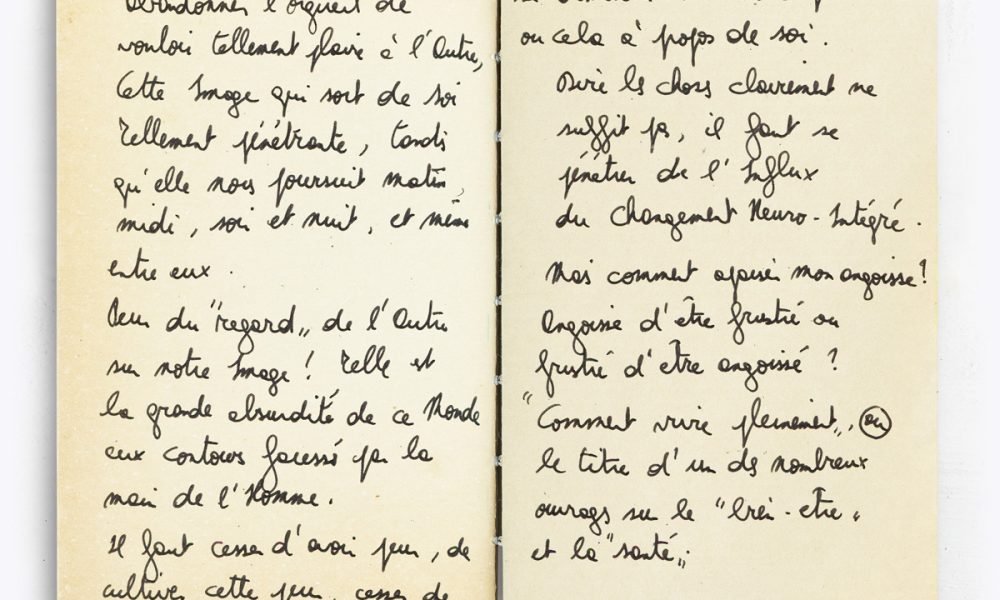 Abandonner l'orgueil de
vouloir tellement plaire à l'Autre,
Cette Image qui sort de soi
Tellement pénétrante, tandis
qu'elle nous poursuit matin,
midi, soir et nuit, et même
entre eux.
Peur du "regard" de l'Autre
sur notre Image ! Telle est
la grande absurdité de ce Monde
aux contours faussés par la
main de l'Homme.
Il faut cesser d'avoir peur, de
cultiver cette peur, cesser de
ou cela à propos de soi.
Dire les choses clairement ne
suffit pas, il faut se
pénétrer de l'Influx
du Changement Neuro-Intégré.
Mais comment apaiser mon angoisse ?
Angoisse d'être frustré ou
frustré d'être angoissé ?
"Comment vivre pleinement", ou
le titre d'un des nombreux
ouvrages sur le "bien-être"
et la "santé".